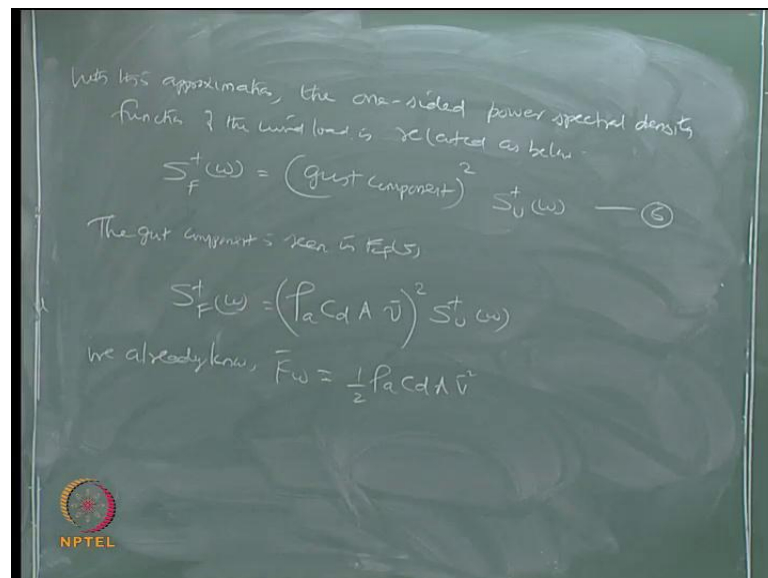 With this approximation, the one-sided power spectral density
function of the wind load is related as below.
S_F^+(ω) = (gust component)^2 S_U^+(ω) — ⑥
The gust component is seen in Eq(5)
S_F^+(ω) = (ρ_a C_d A v̄)^2 S_U^+(ω)
we already know, F̄_ω = 1/2 ρ_a C_d A v̄^2
NPTEL